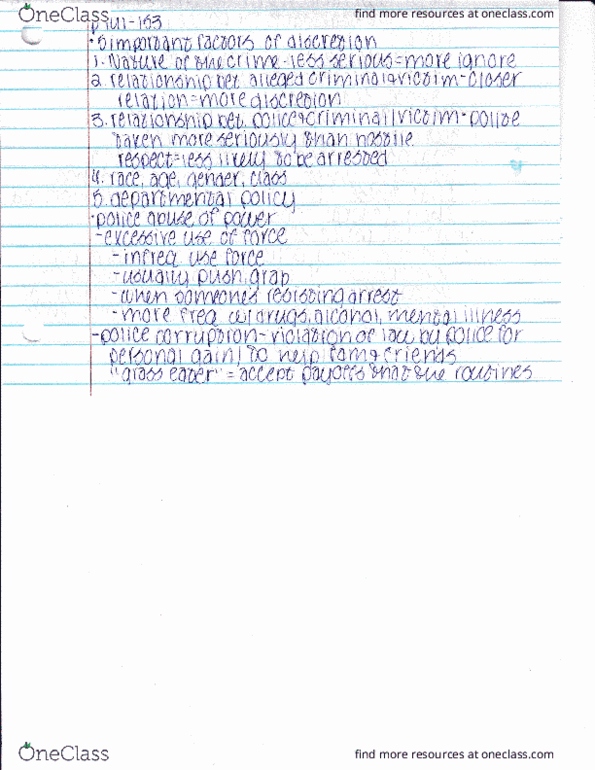 OneClass
find more resources at oneclass.com
p 141-163
·5 important factors of discretion
1. Nature of the crime-less serious=more ignore
2. relationship bet. alleged criminal & victim-closer
relation=more discretion
3. relationship bet. police & criminal/victim-polite
taken more seriously than hostile
respect=less likely to be arrested
4. race, age, gender, class
5. departmental policy
·police abuse of power
-excessive use of force
-infreq use force
-usually push, grab
-when someones resisting arrest
-more freq w/drugs, alcohol, mental illness
-police corruption-violation of law by police for
personal gain/to help fam & friends
"grass eater"=accept payoffs that the routines
OneClass
find more resources at oneclass.com